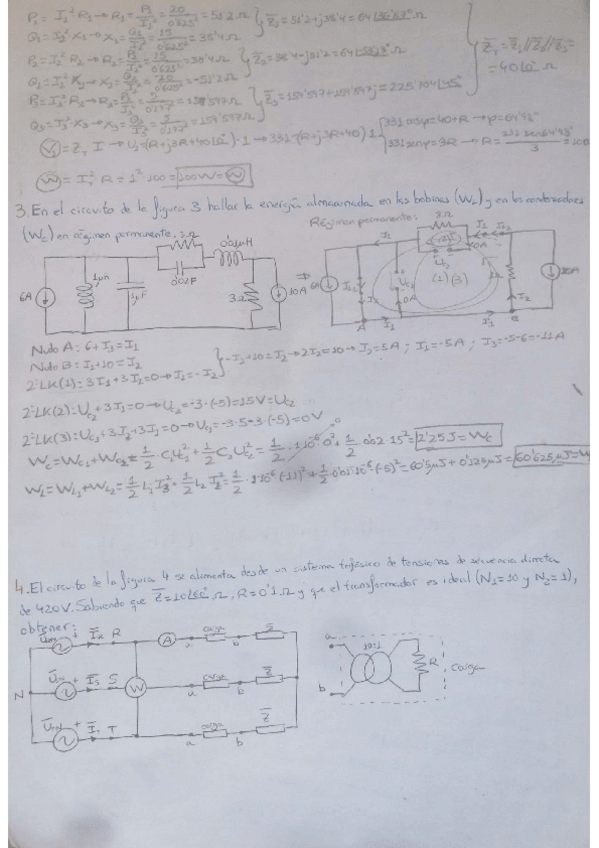 P₁ = I₁² R₁ → R₁ = P₁/I₁² = 20/0'625² = 51'2 Ω
Z̄₁ = 51'2 + j38'4 = 64 Ω
Q₁ = I₁² X₁ → X₁ = Q₁/I₁² = 15/0'625² = 38'4 Ω
P₂ = I₂² R₂ → R₂ = 15/0'625² = 38'4 Ω
Z̄₂ = 38'4 - j51'2 = 64 Ω
Z̄T = Z̄₁ // Z̄₂ // Z̄₃ =
= 40∠0° Ω
Q₂ = I₂² X₂ → X₂ = Q₂/I₂² = -51'2 Ω
P₃ = I₃² R₃ → R₃ = 159'597 Ω
Z̄₃ = 159'597 + 159'597j = 225'704∠45°
Q₃ = I₃² X₃ → X₃ = 159'597 Ω
= ZT I → (R + j3R + 40∠0°) · 1 → 331 = (R + j3R + 40) 1
331 cosφ = 40 + R → φ = 64'48°
331 senφ = 3R → R = 331 sen 64'48°/3 = 100
W = I² R = 1² 100 = 100 W = W
3. En el circuito de la figura 3 hallar la energía almacenada en las bobinas (WL) y en los condensadores
(WC) en régimen permanente.
Régimen permanente:
3Ω
6A
1μH
1μF
0'02F
0'01μH
3Ω
10A
3Ω
0A
Uc2
0A
(1) (3)
I₂
A
I₁
B
Nudo A: 6 + I₃ = I₁
Nudo B: I₁ + 10 = I₂
-I₂ + 10 = I₂ → 2I₂ = 10 → I₂ = 5A ; I₁ = -5A ; I₃ = -5 - 6 = -11A
2ªLK(1): 3I₁ + 3I₂ = 0 → I₁ = -I₂
2ªLK(2): Uc₂ + 3I₁ = 0 → Uc₂ = -3·(-5) = 15V = Uc₂
2ªLK(3): Uc₁ + 3I₂ + 3I₁ = 0 → Uc₁ = -3·5 - 3·(-5) = 0V
WC = WC₁ + WC₂ = 1/2 · C₁Uc₁² + 1/2 C₂Uc₂² = 1/2 · 1·10⁻⁶ 0² + 1/2 0'02·15² = 2'25 J = WC
WL = WL₁ + WL₂ = 1/2 L₁ I₃² + 1/2 L₂ I₁² = 1/2 · 1·10⁻⁶ (-11)² + 1/2 0'01·10⁻⁶ (-5)² = 60'5μJ + 0'125μJ = 60'625μJ = W
4. El circuito de la figura 4 se alimenta desde un sistema trifásico de tensiones de secuencia directa
de 420V. Sabiendo que Z̄ = 10∠60° Ω, R = 0'1 Ω y que el transformador es ideal (N₁=10 y N₂=1),
obtener:
ĪR R
A
carga
a b
Z̄
N
ĪS S
W
carga
a b
Z̄
ĪT T
carga
a b
Z̄
a
b
10:1
R
Carga